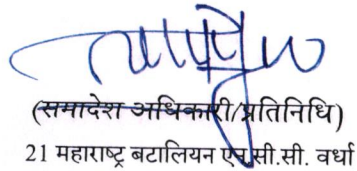 (समादेश अधिकारी/प्रतिनिधि)
21 महाराष्ट्र बटालियन एन.सी.सी. वर्धा